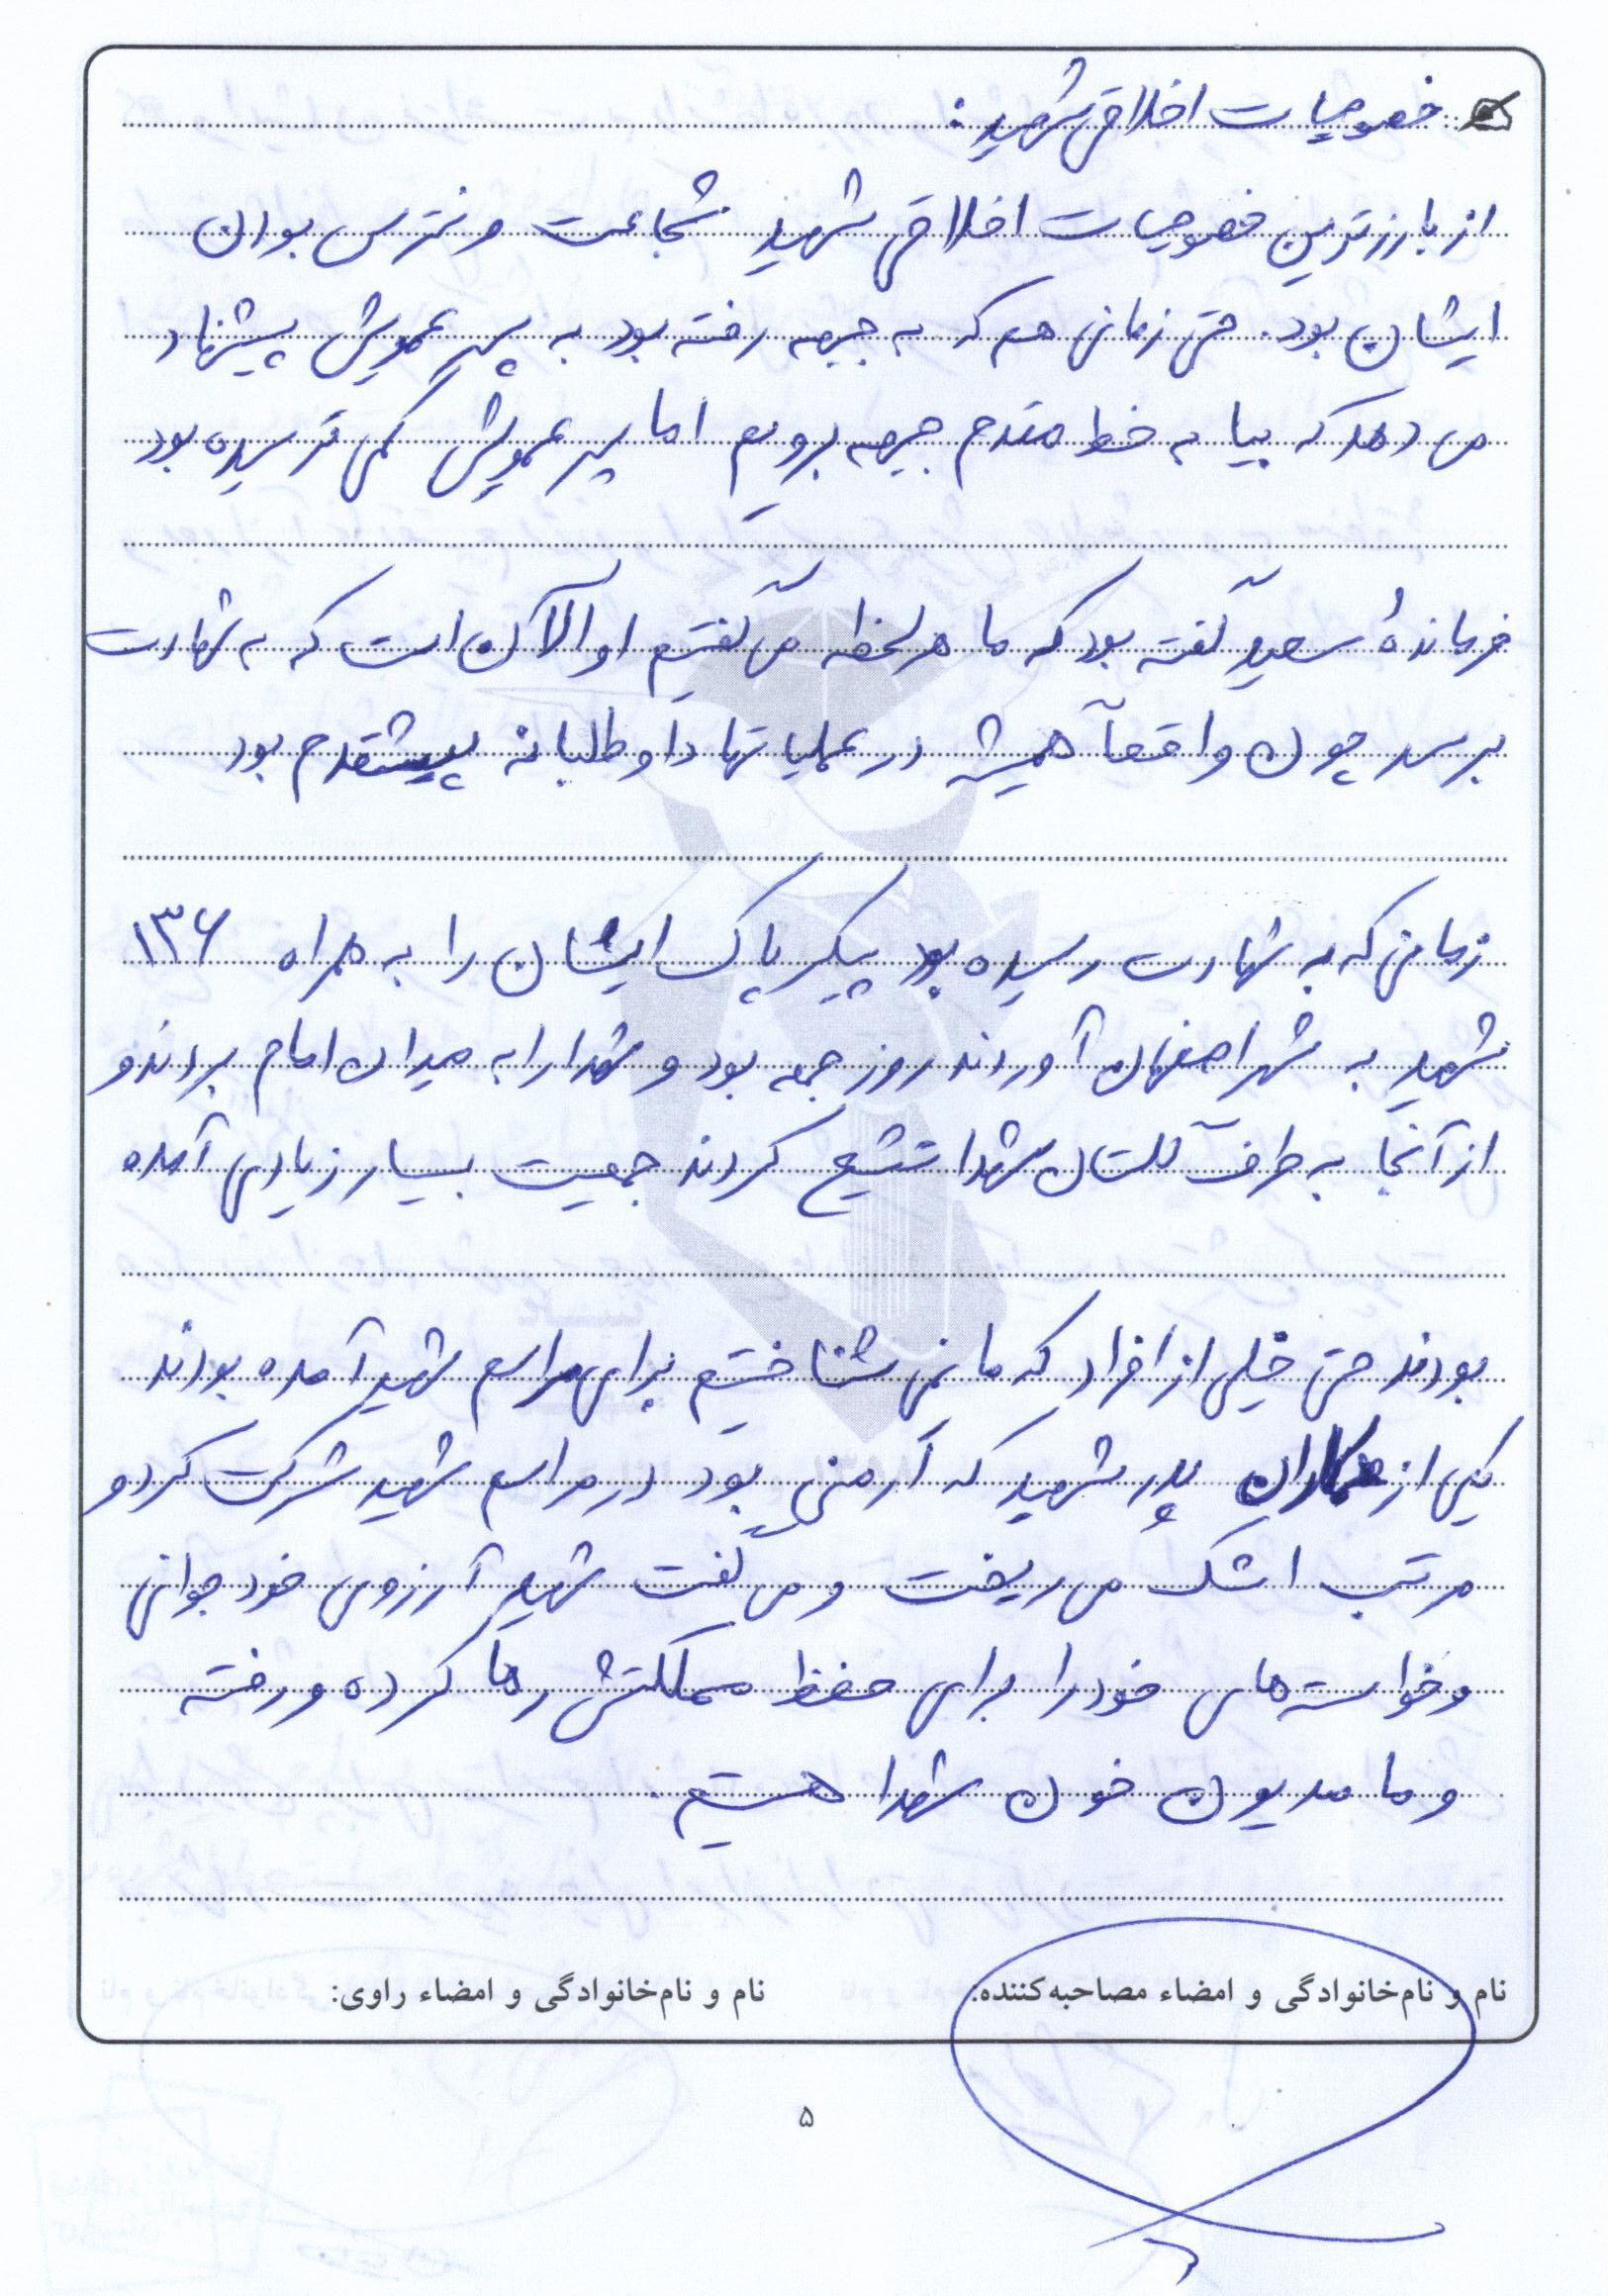 خصوصیات اخلاقی شهید:
از بارزترین خصوصیات اخلاقی شهید شجاعت و نترس بودن
ایشان بود. حتی زمانی هم که به جبهه رفته بود به پسر عمویش پیشنهاد
می دهد که بیا به خط مقدم جبهه برویم اما پسر عمویش کمی ترسیده بود
فرماندهٔ سعید گفته بود که ما هر لحظه می گفتیم او الآن است که به شهادت
برسد چون واقعاً همیشه در عملیاتها داوطلبانه پیشقدم بود
زمانی که به شهادت رسیده بود پیکر پاک ایشان را به همراه ۱۳۶
شهید به شهر اصفهان آوردند روز جمعه بود و شهدا را به میدان امام بردند و
از آنجا به طرف گلستان شهدا تشیع کردند جمعیت بسیار زیادی آمده
بودند حتی خیلی از افراد که ما نمی شناختیم برای مراسم شهید آمده بودند
یکی از همکاران پدر شهید که اَرمنی بود در مراسم شهید شرکت کرد و
مرتب اشک می ریخت و می گفت شهید آرزوی خود جوانی
و خواسته های خود را برای حفظ مملکتش رها کرده و رفته
و ما مدیون خون شهدا هستیم.
نام و نام‌خانوادگی و امضاء مصاحبه‌کننده: نام و نام‌خانوادگی و امضاء راوی:
۵